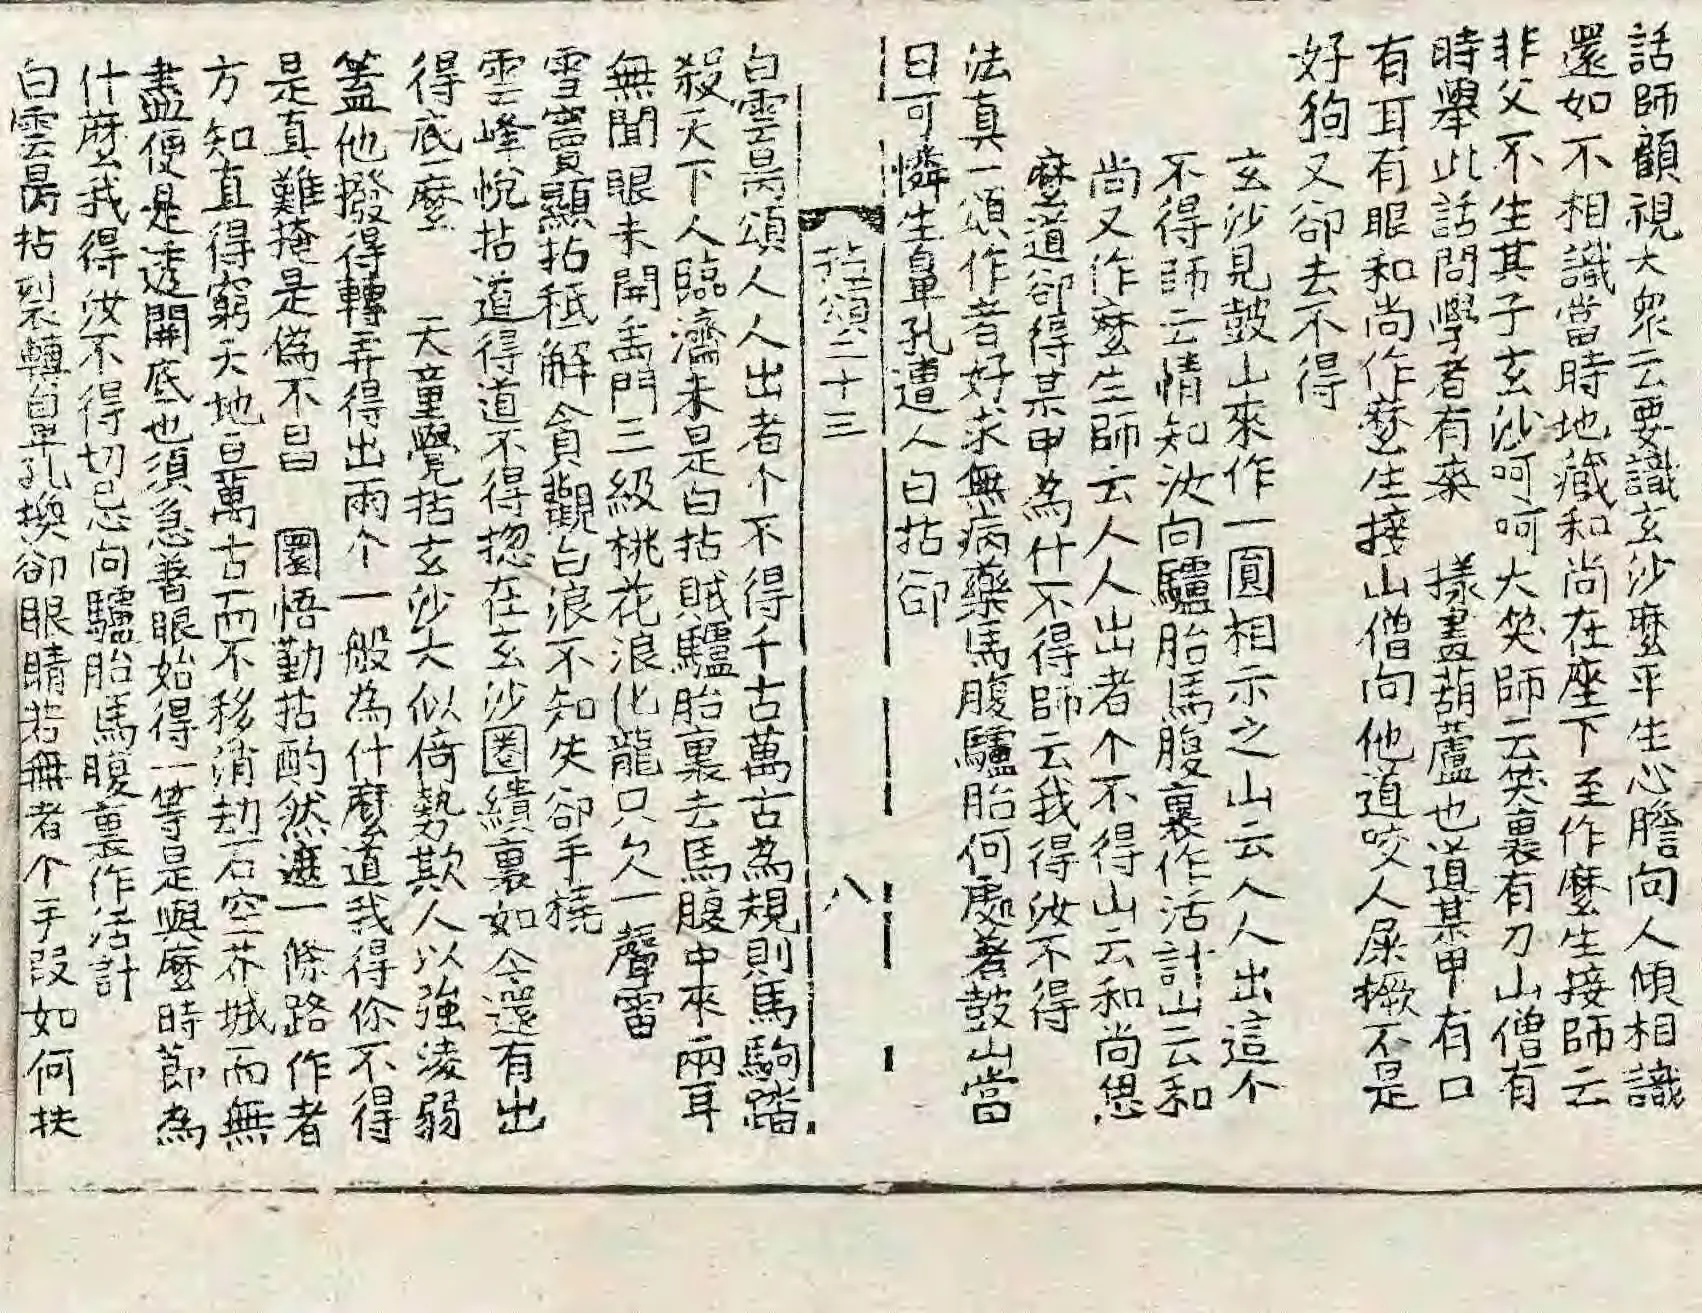 話師顧視大衆云要識玄沙麼平生心膽向人傾相識
還如不相識當時地藏和尚在座下至作麼生接師云
非父不生其子玄沙呵呵大笑師云笑裏有刀山僧有
時舉此話問學者有來 㨾畫葫蘆也道某甲有口
有耳有眼和尚作麼生接山僧向他道咬人屎橛不是
好狗又卻去不得
玄沙見鼓山來作一圓相示之山云人人出這个
不得師云情知汝向驢胎馬腹裏作活計山云和
尚又作麼生師云人人出者个不得山云和尚恁
麼道卻得某甲為什不得師云我得汝不得
法真一頌作者好求無病藥馬腹驢胎何處著鼓山當
日可憐生鼻孔遭人白拈卻
拈頌二十三 八
白雲昺頌人人出者个不得千古萬古為規則馬駒踏
殺天下人臨濟未是白拈賊驢胎裏去馬腹中來兩耳
無聞眼未開禹門三級桃花浪化龍只欠一聲雷
雪竇顯拈秖解貪觀白浪不知失卻手橈
雲峰悅拈道得道不得揔在玄沙圈繢裏如今還有出
得底麼 天童覺拈玄沙大似倚勢欺人以強淩弱
蓋他撥得轉弄得出兩个一般為什麼道我得你不得
是真難掩是僞不昌 圜悟勤拈酌然遮一條路作者
方知直得窮天地亘萬古而不移消劫石空芥城而無
盡便是透開底也須急著眼始得一等是與麼時節為
什麽我得汝不得切忌向驢胎馬腹裏作活計
白雲昺拈裂轉鼻孔換卻眼睛若無者个手段如何扶